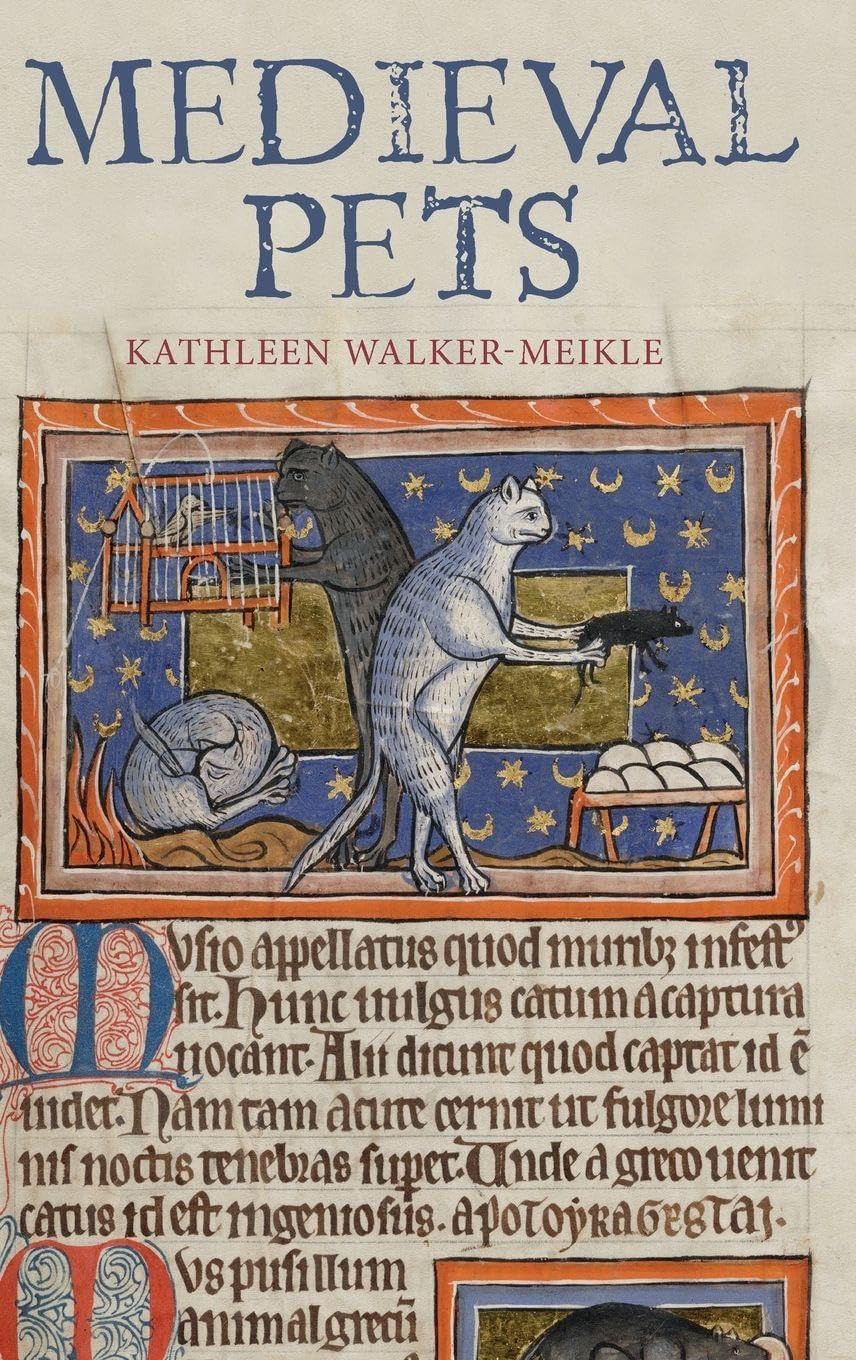 MEDIEVAL
PETS
KATHLEEN WALKER-MEIKLE
Musio appellatus quod muribꝫ infestꝰ
sit. Hunc uulgus catum a captura
uocant. Alii dicunt quod captat id ē
uidet. Nam tam acute cernit ut fulgore lumi
nis noctis tenebras supet. Unde a greco uenit
catus id est ingeniosus. apotoy
Mus pusillum
animal grecū